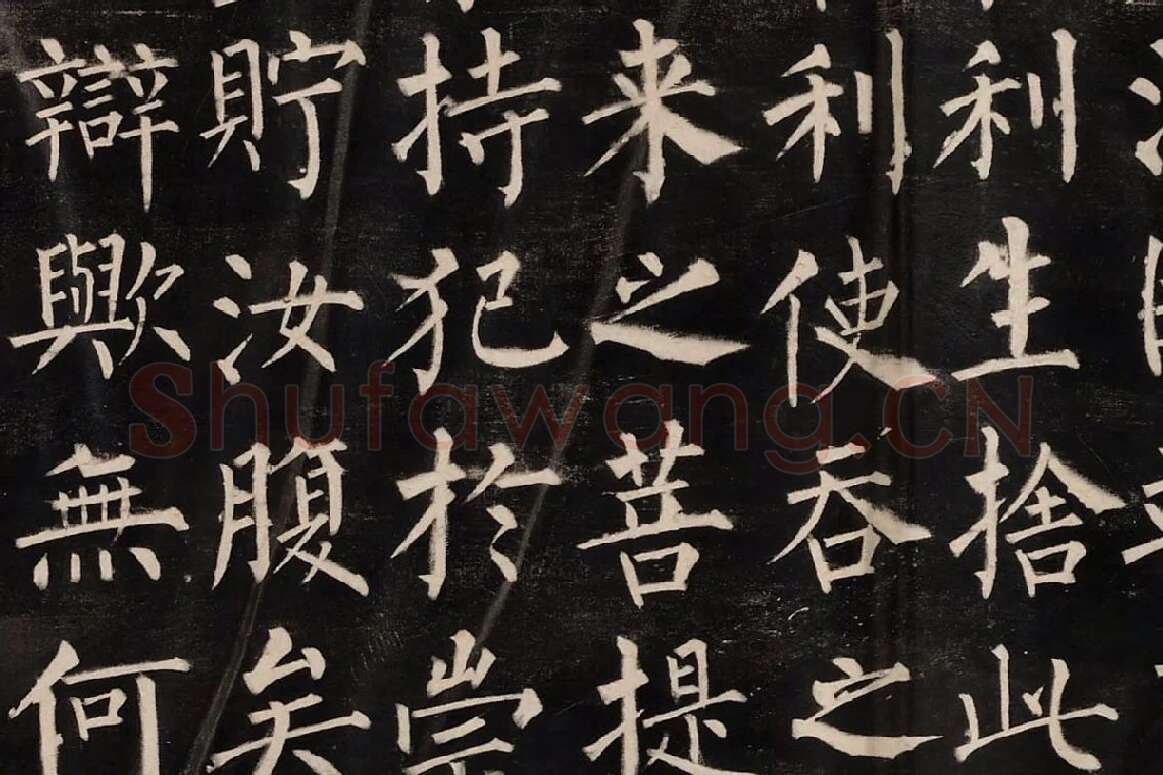 利生捨此
利使吞之
来之菩提
持犯於崇
貯汝腹矣
辯歟無何
Shufawang.CN